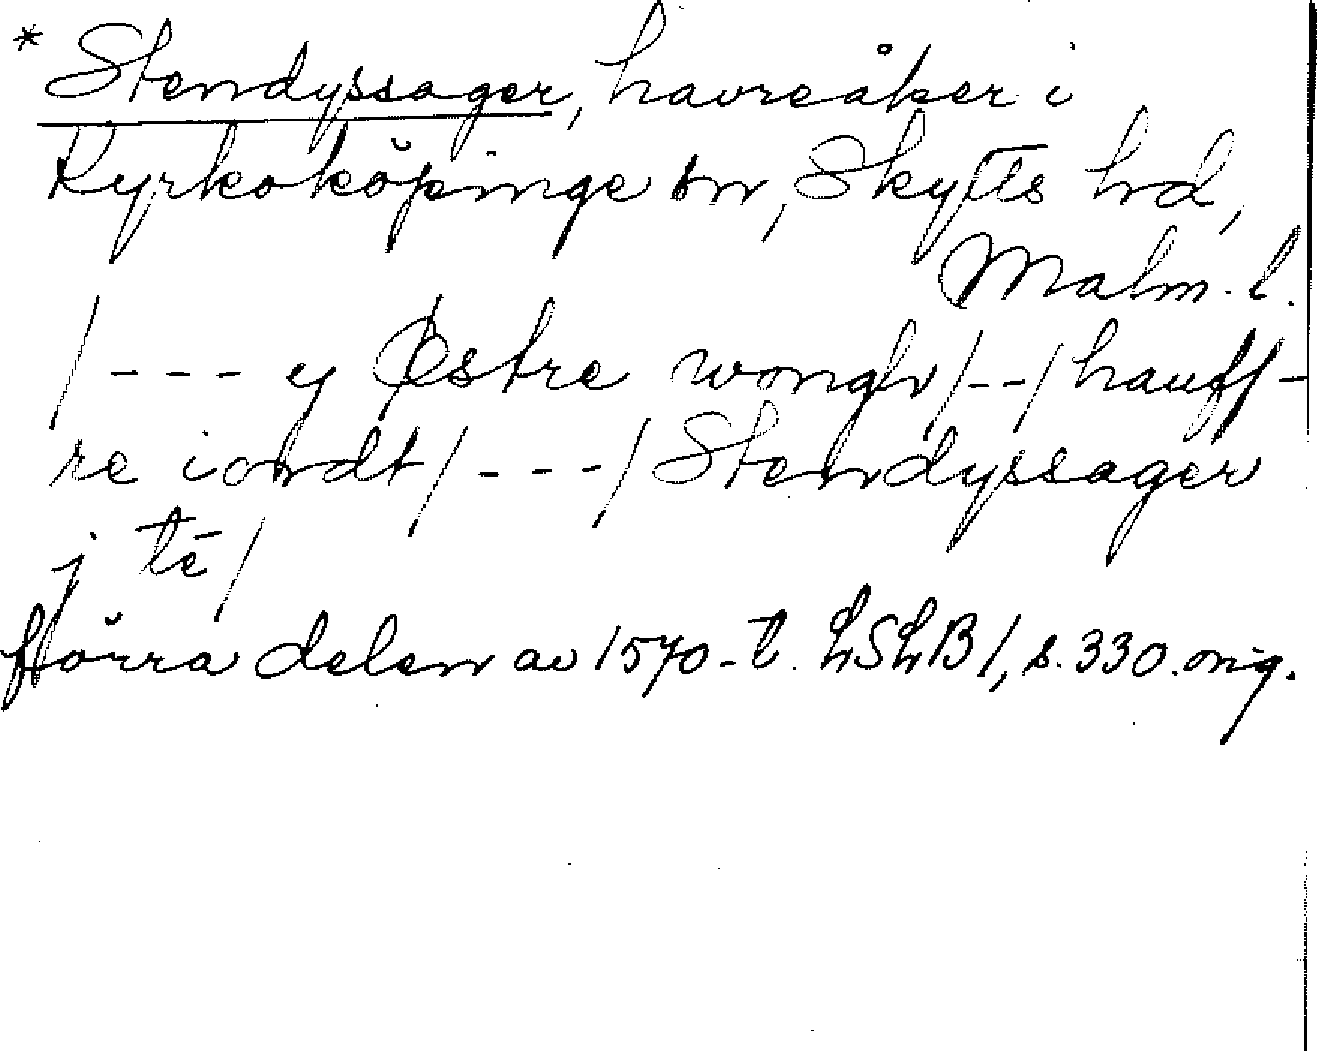 * Stendyssager, havreåker i
Kyrkoköpinge sn, Skytts hd,
Malm. l.
/--- y Østre wongh/--/hauff-
re iordt/---/Stendyssager
j tē/
förra delen av 1570-t. LSLB 1, s. 330. orig.